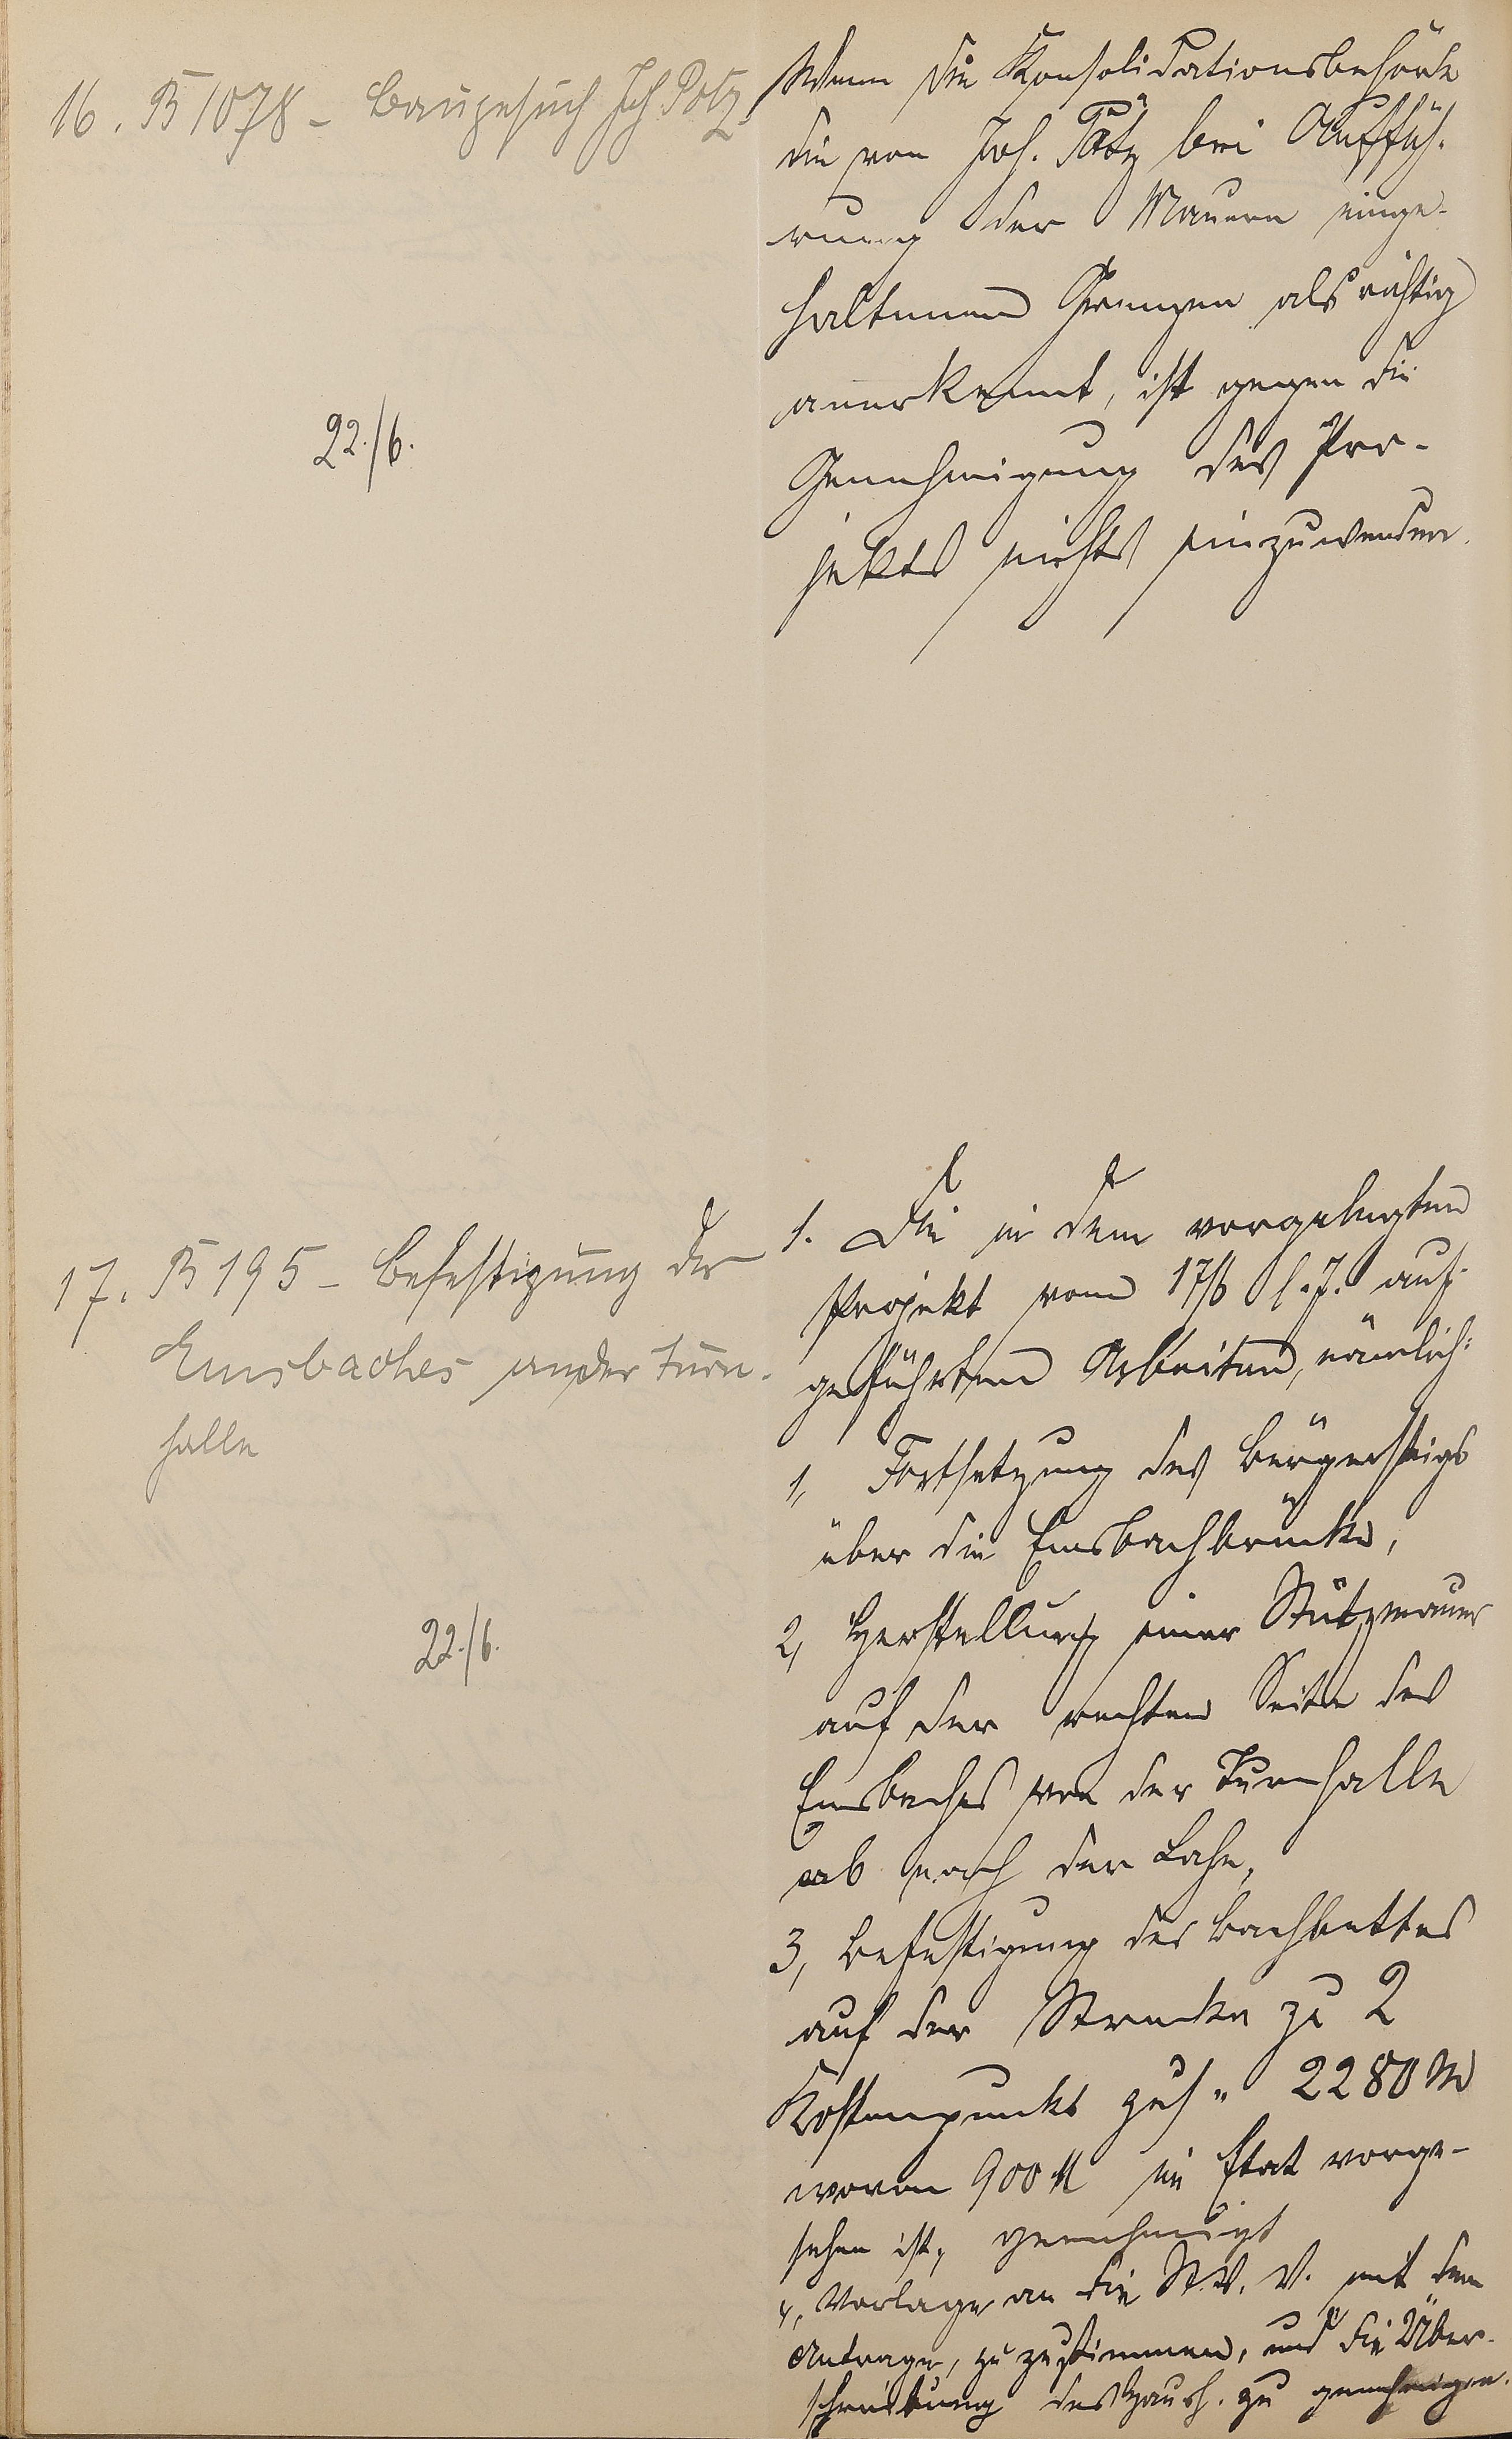 16. B 1078 - Baugesuch Joh Pötz
22./6.
Wenn die Konsolidationsbehörde
die von Joh. Pötz bei Auffüh-
rung der Mauern einge-
haltenen Grenzen als richtig
anerkennt, ist gegen die
Genehmigung des Pro-
jekts nichts einzuwenden.
17. B 195 - Befestigung des
Emsbaches an der Turn-
halle
22./6.
1. Die in dem vorgelegten
Projekt vom 17/6 l. J. auf-
geführten Arbeiten, nämlich:
1, Fortsetzung des Bürgersteigs
über die Emsbachbrücke,
2, Herstellung einer Stützmauer
auf der rechten Seite des
Emsbaches von der Turnhalle
ab nach der Lahn,
3, Befestigung des Bachbettes
auf der Strecke zu 2
Kostenpunkt 2280 M
wovon 900 M im Etat vorge-
sehen ist, genehmigt
Vorlage an die St. V. V. mit dem
Antrage, zuzustimmen, und die Über-
schreitung des Haush. zu genehmigen.